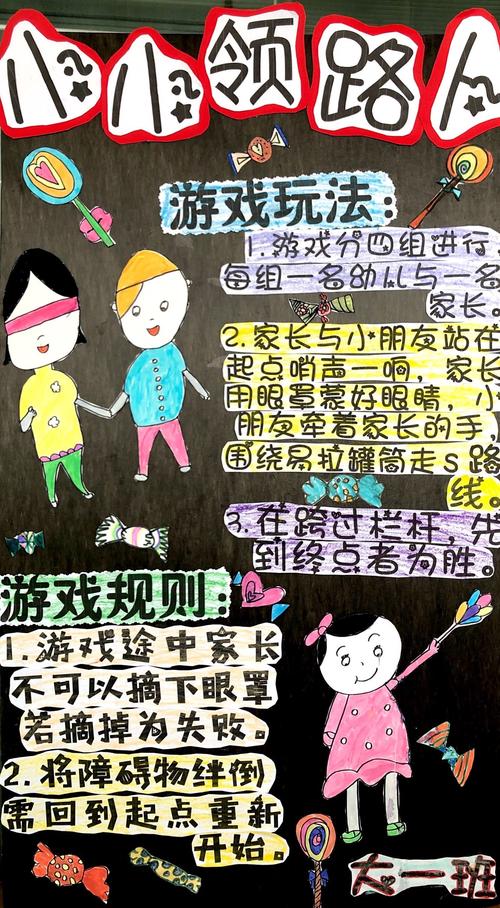 小小领路人
游戏玩法:
1.游戏分四组进行,
每组一名幼儿与一名
家长。
2.家长与小朋友站在
起点哨声一响,家长
用眼罩蒙好眼睛,小
朋友牵着家长的手,
围绕易拉罐筒走S路
线。
3.在跨过栏杆,先
到终点者为胜。
游戏规则:
1.游戏途中家长
不可以摘下眼罩
若摘掉为失败。
2.将障碍物绊倒
需回到起点重新
开始。
大一班